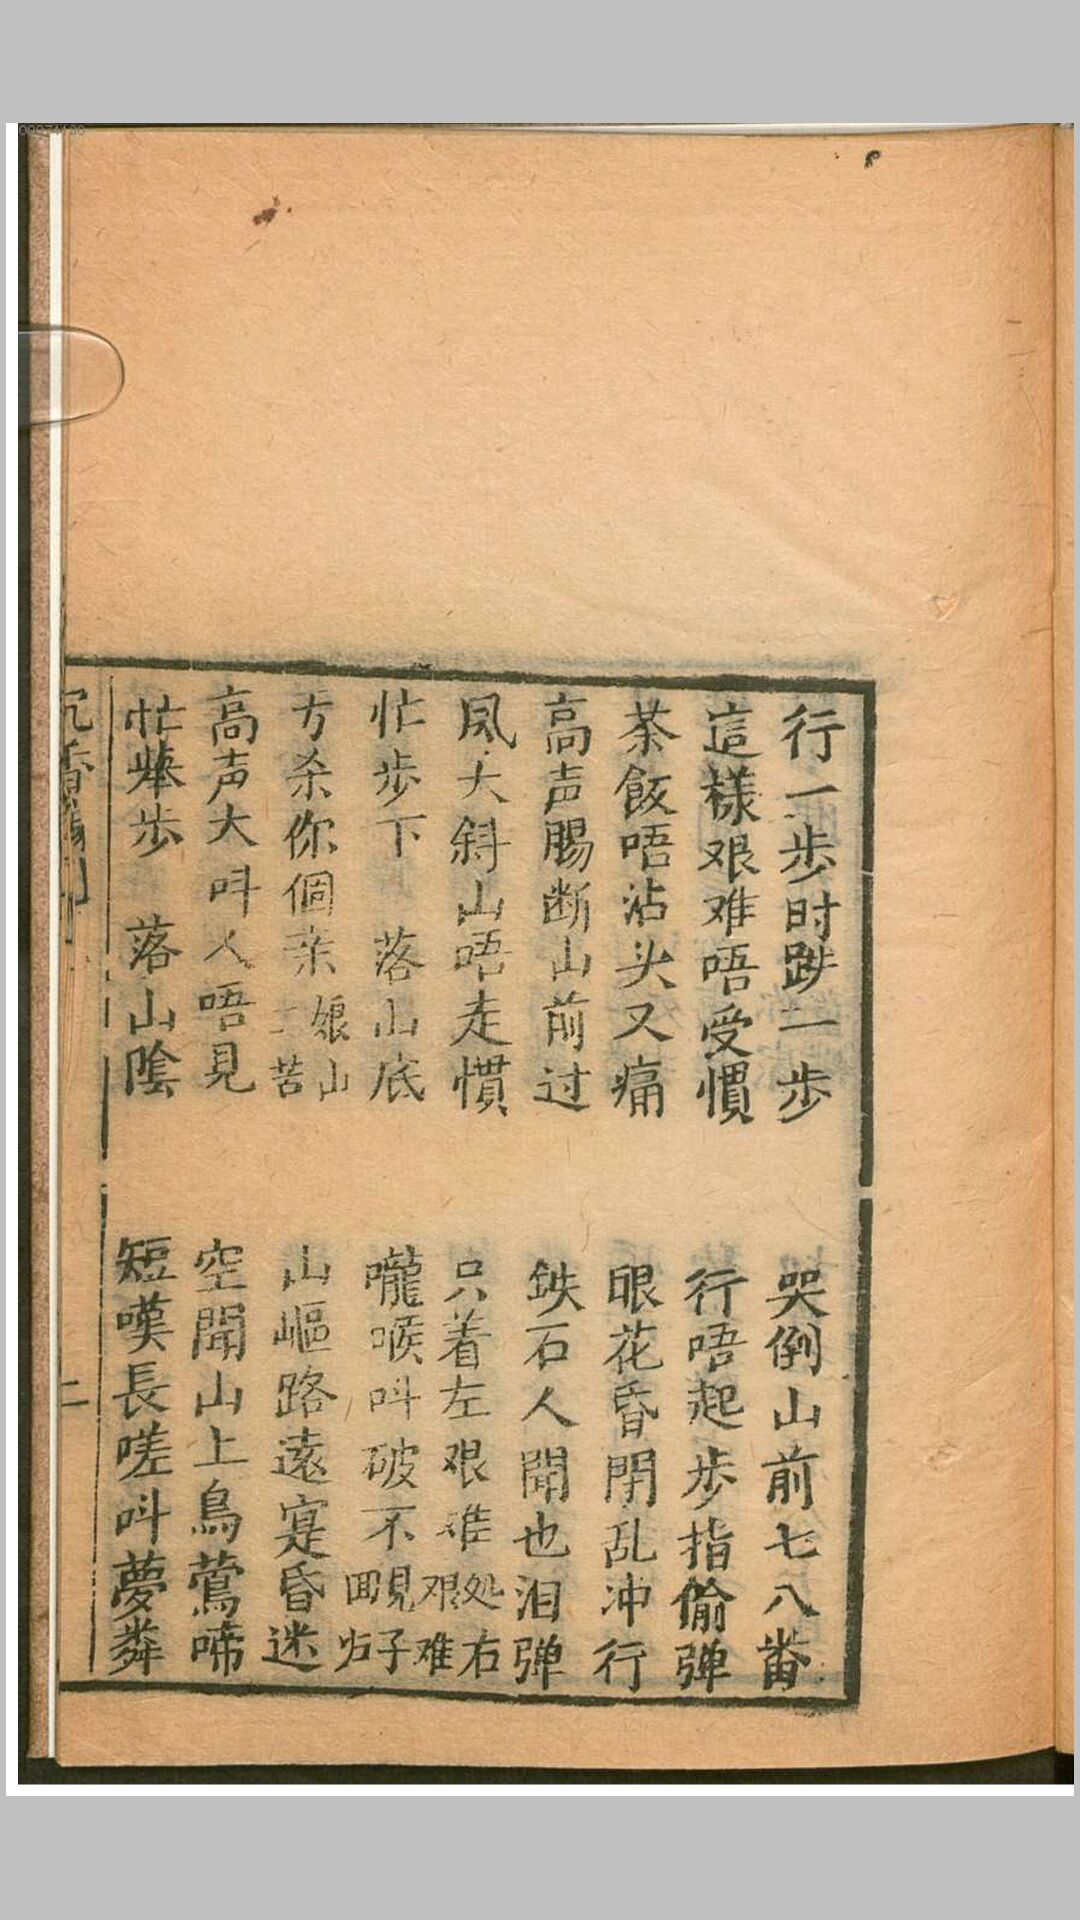 行一步时跸一步　哭倒山前七八畨
這樣艰难唔受慣　行唔起步指偷弹
茶飯唔沾头又痛　眼花昏閉乱冲行
高声腸断山前过　鉄石人聞也泪弹
风大斜山唔走慣　只着左艰难处右艰难
忙步下　落山底　嚨喉呌破不見子回归
方杀你個亲娘山二苦　山嶇路遠寔昏迷
高声大呌人唔見　空聞山上鳥鶯啼
忙举步　落山陰　短嘆長嗟呌夢粦
沉香
二